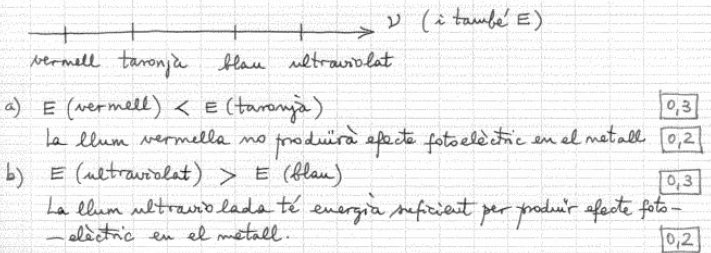 ν (i també E)
vermell taronja blau ultraviolat
a) E (vermell) < E (taronja) 0,3
La llum vermella no produirà efecte fotoelèctric en el metall 0,2
b) E (ultraviolat) > E (blau) 0,3
La llum ultraviolada té energia suficient per produir efecte foto-
-elèctric en el metall. 0,2